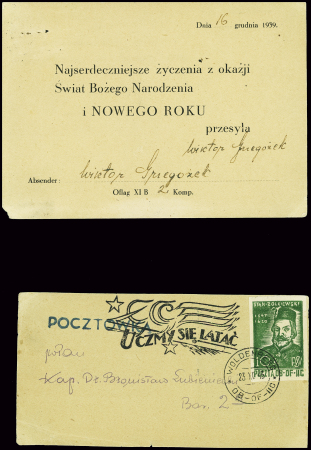 Dnia 16 grudnia 1939.
Najserdeczniejsze życzenia z okazji
Świat Bożego Narodzenia
i NOWEGO ROKU
przesyła
Wiktor Gregorek
Absender: Wiktor Gregorek
Oflag XI B 2 Komp.
POCZTÓWKA
UCZMY SIĘ LATAĆ
STAN·ŻÓŁKIEWSKI
1547
1620
POCZTA OB-OF-IIC
WOLDENBERG
OB-OF-IIC
Kap. Dr. Bronisław
Bar. 2